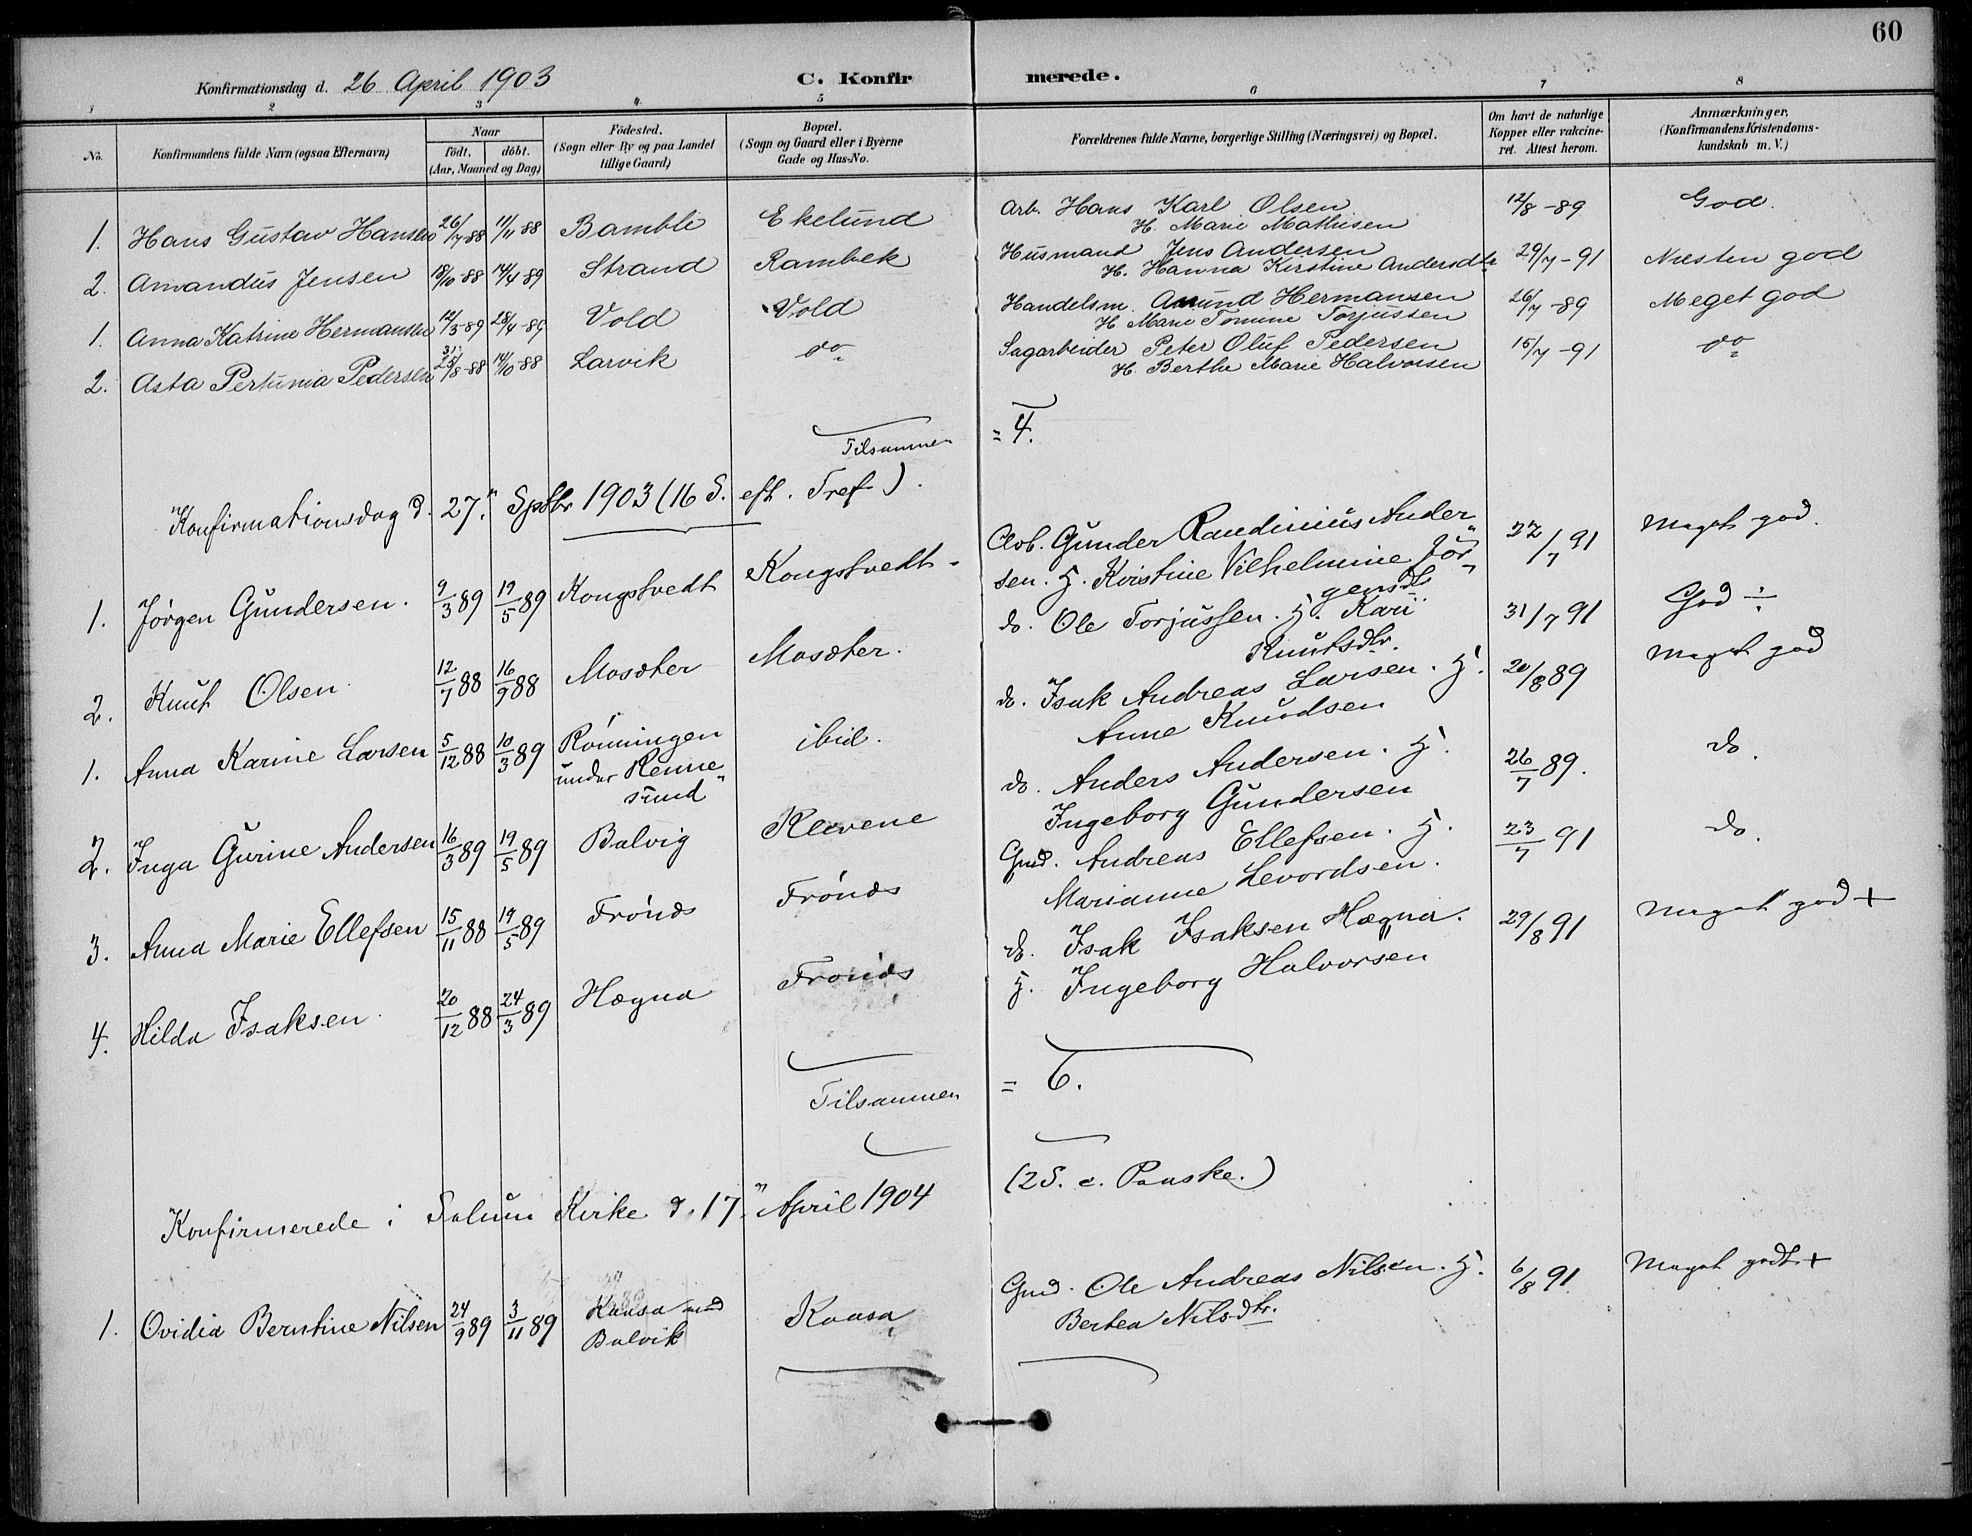 60
Konfirmationsdag d. 26 April 1903
C. Konfirmerede.
1 2 3 4 5 6 7 8
No.
Konfirmandens fulde Navn (ogsaa Efternavn)
Naar
födt. döbt.
(Aar, Maaned og Dag)
Födested.
(Sogn eller By og paa Landet
tillige Gaard)
Bopæl.
(Sogn og Gaard eller i Byerne
Gade og Hus-No.
Forældrenes fulde Navne, borgerlige Stilling (Næringsvei) og Bopæl.
Om havt de naturlige
Kopper eller vakcine-
ret. Attest herom.
Anmærkninger.
(Konfirmandens Kristendoms-
kundskab m. V.)
1. Hans Gustav Hansen 26/7-88 11/11 88 Bamble Ekelund Arb. Hans Karl Olsen 12/8-89 God.
H. Marie Mathisen
2. Amandus Jensen 18/10-88 14/4-89 Strand Rambek Husmand Jens Andersen 29/7-91 Næsten god
H. Hanna Kirstine Andersdtr
1. Anna Katrine Hermansen 12/3-89 28/4-89 Vold Vold Handelsm. Amund Hermansen 26/7-89 Meget god
H Marie Tomine Torjussen
2. Asta Pertunia Pedersen 25/8-88 14/10-88 Larvik do Sagarbeider Peter Oluf Pedersen 15/7-91 do
H. Berthe Marie Halvorsen
Tilsammen = 4.
Konfirmationsdag d. 27. Sptbr 1903 (16 S. eft. Tref).
1. Jørgen Gundersen. 9/3 89 19/5 89 Kongstvedt Kongstvedt Arb. Gunder Randinius Ander 22/7 91 Meget god.
sen. H. Kristine Vilhelmine Jör
gensdt
2. Knut Olsen 12/7 88 16/9 88 Mosæter Mosæter. do. Ole Torjussen. H. Kari 31/7 91 God ÷
Knutsdtr.
1. Anna Karine Larsen 5/12 88 10/3 89 Rönningen ibid. do. Isak Andreas Larsen. H. 20/8 89 Meget god
under Renne
sund
Anne Knudsen
2. Inga Gurine Andersen 16/3 89 19/5 89 Balvig Klevene do. Anders Andersen. H. 26/7 89. do.
Ingeborg Gundersen
3. Anna Marie Ellefsen 15/11 88 19/5 89 Frönæs Frönæs Gmd. Andreas Ellefsen. H. 23/7 91 do.
Marianne Levordsen.
4. Hilda Isaksen. 20/12 88 24/3 89 Hægna Frönæs do. Isak Isaksen Hægna. 29/8 91 Meget god +
H. Ingeborg Halvorsen
Tilsammen = 6.
Konfirmerede i Solum Kirke d. 17. April 1904 (2 S. e. Paaske.)
1. Ovidia Berntine Nilsen 24/9 89 3/11 89 Kaasa ved Kaasa Gmd. Ole Andreas Nilsen. H. 6/8 91. Meget godt +
Balvik
Bertea Nilsdtr.